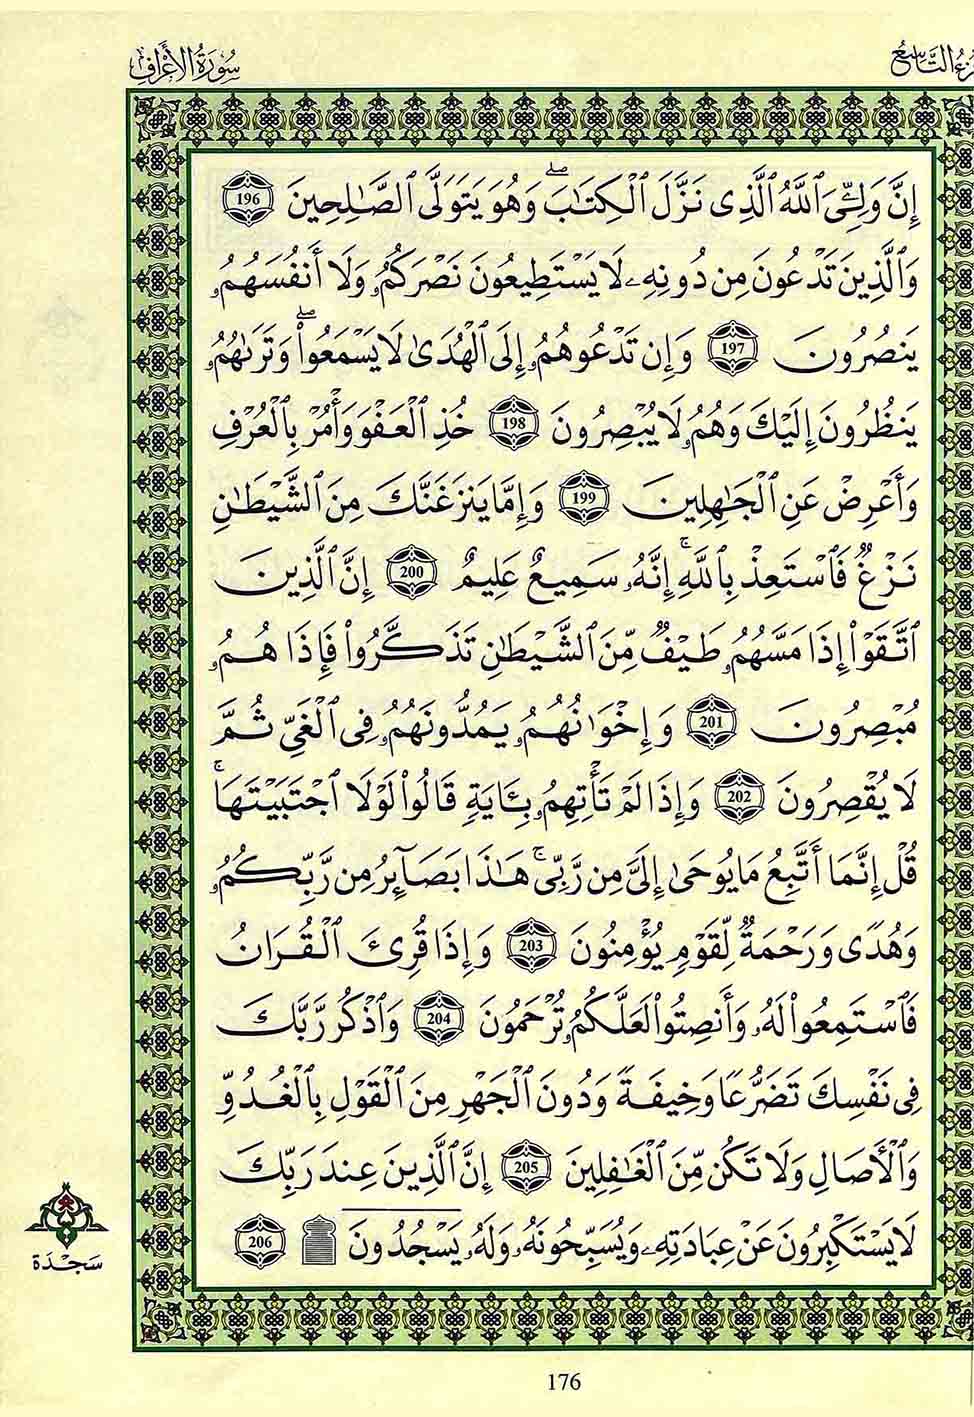 التَّاسِعُ
سُورَةُ الأَعْرَافِ
إِنَّ وَلِـِّۧيَ ٱللَّهُ ٱلَّذِى نَزَّلَ ٱلْكِتَٰبَۖ وَهُوَ يَتَوَلَّى ٱلصَّٰلِحِينَ 196
وَٱلَّذِينَ تَدْعُونَ مِن دُونِهِۦ لَا يَسْتَطِيعُونَ نَصْرَكُمُۥ وَلَا أَنفُسَهُمُۥ
يَنصُرُونَ 197 وَإِن تَدْعُوهُمُۥ إِلَى ٱلْهُدَىٰ لَا يَسْمَعُوا۟ۖ وَتَرَىٰهُمُۥ
يَنظُرُونَ إِلَيْكَ وَهُمُۥ لَا يُبْصِرُونَ 198 خُذِ ٱلْعَفْوَ وَأْمُرْ بِٱلْعُرْفِ
وَأَعْرِضْ عَنِ ٱلْجَٰهِلِينَ 199 وَإِمَّا يَنزَغَنَّكَ مِنَ ٱلشَّيْطَٰنِ
نَزْغٌ فَٱسْتَعِذْ بِٱللَّهِۚ إِنَّهُۥ سَمِيعٌ عَلِيمٌ 200 إِنَّ ٱلَّذِينَ
ٱتَّقَوْا۟ إِذَا مَسَّهُمُۥ طَيْفٌ مِّنَ ٱلشَّيْطَٰنِ تَذَكَّرُوا۟ فَإِذَا هُمُۥ
مُبْصِرُونَ 201 وَإِخْوَٰنُهُمُۥ يَمُدُّونَهُمُۥ فِى ٱلْغَىِّ ثُمَّ
لَا يُقْصِرُونَ 202 وَإِذَا لَمْ تَأْتِهِمُۥ بِـَٔايَةٍ قَالُوا۟ لَوْلَا ٱجْتَبَيْتَهَاۚ
قُلْ إِنَّمَا أَتَّبِعُ مَا يُوحَىٰ إِلَىَّ مِن رَّبِّىۚ هَٰذَا بَصَآئِرُ مِن رَّبِّكُمُۥ
وَهُدًى وَرَحْمَةٌ لِّقَوْمٍ يُؤْمِنُونَ 203 وَإِذَا قُرِئَ ٱلْقُرَانُ
فَٱسْتَمِعُوا۟ لَهُۥ وَأَنصِتُوا۟ لَعَلَّكُمُۥ تُرْحَمُونَ 204 وَٱذْكُر رَّبَّكَ
فِى نَفْسِكَ تَضَرُّعًا وَخِيفَةً وَدُونَ ٱلْجَهْرِ مِنَ ٱلْقَوْلِ بِٱلْغُدُوِّ
وَٱلْأَصَالِ وَلَا تَكُن مِّنَ ٱلْغَٰفِلِينَ 205 إِنَّ ٱلَّذِينَ عِندَ رَبِّكَ
لَا يَسْتَكْبِرُونَ عَنْ عِبَادَتِهِۦ وَيُسَبِّحُونَهُۥ وَلَهُۥ يَسْجُدُونَ ۩ 206
سَجْدَة
176